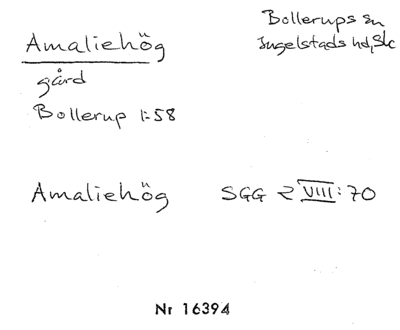 Amaliehög
gård
Bollerup 1:58
Bollerups sn
Ingelstads hd, Sk
Amaliehög SGG 2 VIII:70
Nr 16394